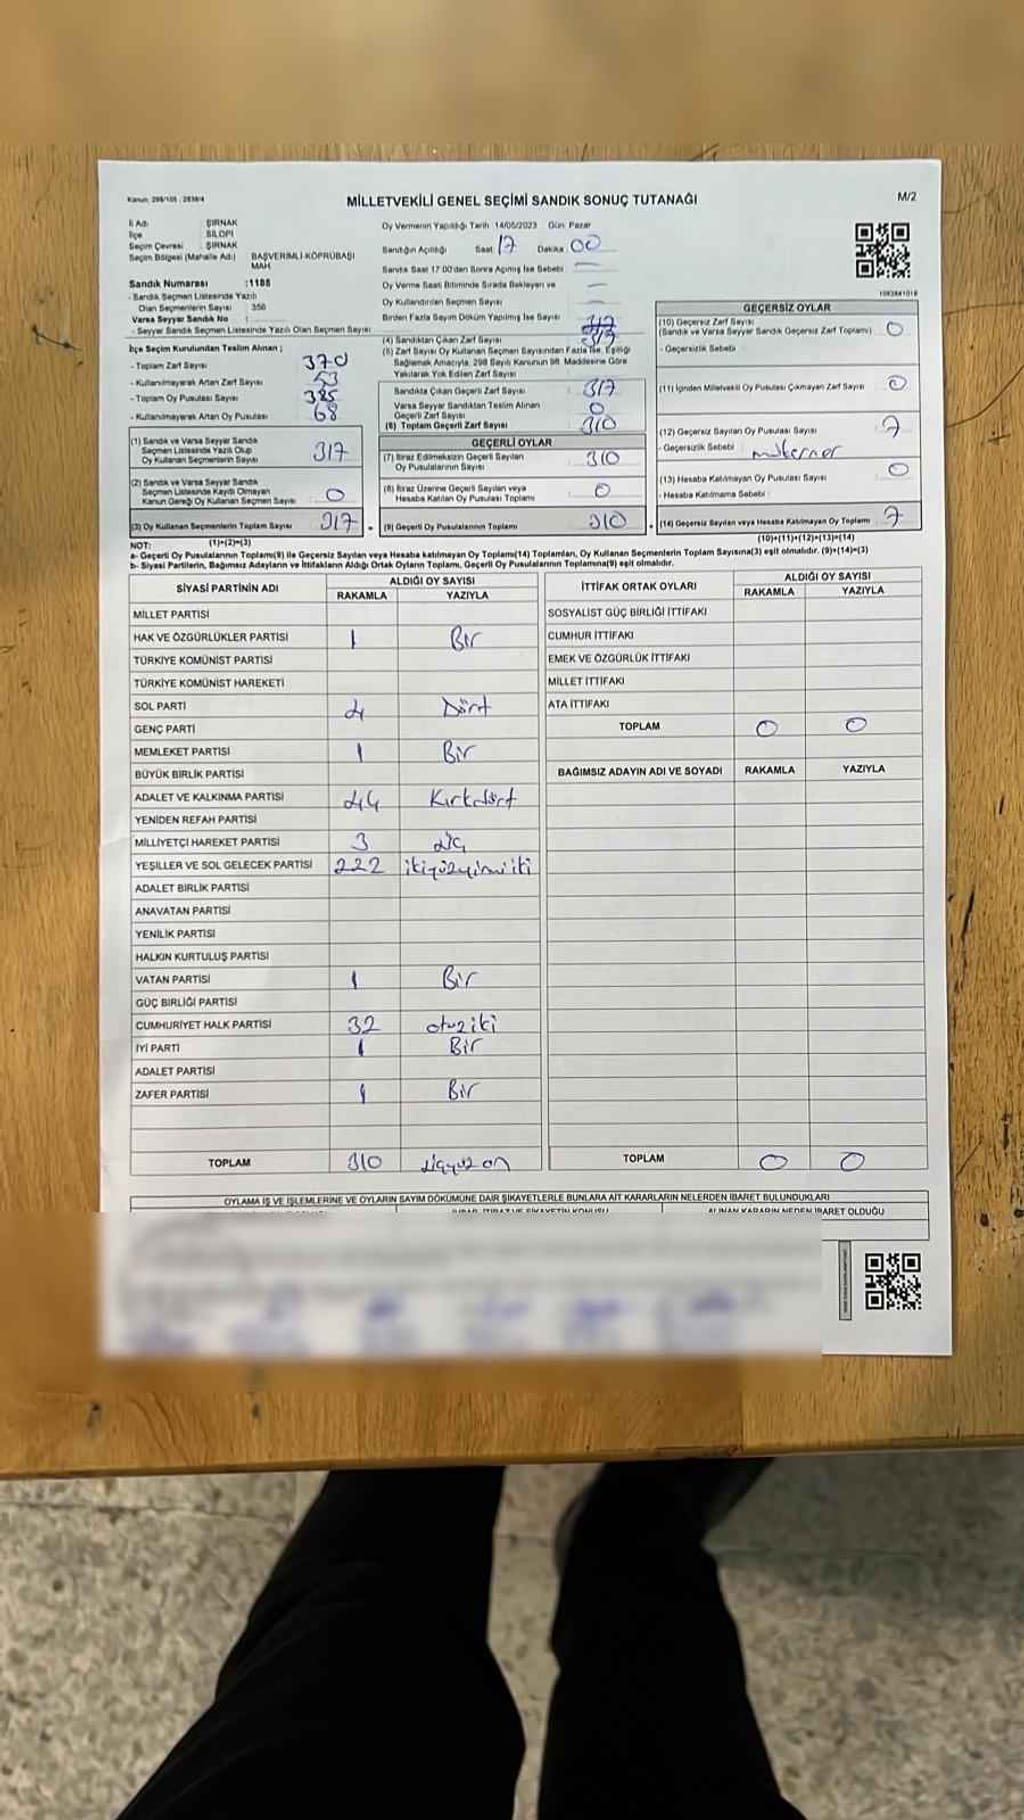 Kanun: 298/105 ; 2839/4
MİLLETVEKİLİ GENEL SEÇİMİ SANDIK SONUÇ TUTANAĞI
M/2
İl Adı : ŞIRNAK
İlçe : SİLOPİ
Seçim Çevresi : ŞIRNAK
Seçim Bölgesi (Mahalle Adı) : BAŞVERİMLİ-KÖPRÜBAŞI MAH.
Sandık Numarası :1188
- Sandık Seçmen Listesinde Yazılı
Olan Seçmenlerin Sayısı : 350
Varsa Seyyar Sandık No :
- Seyyar Sandık Seçmen Listesinde Yazılı Olan Seçmen Sayısı :
İlçe Seçim Kurulundan Teslim Alınan ;
- Toplam Zarf Sayısı 370
- Kullanılmayarak Artan Zarf Sayısı 53
- Toplam Oy Pusulası Sayısı 385
- Kullanılmayarak Artan Oy Pusulası 68
(1) Sandık ve Varsa Seyyar Sandık
Seçmen Listesinde Yazılı Olup
Oy Kullanan Seçmenlerin Sayısı 317
(2) Sandık ve Varsa Seyyar Sandık
Seçmen Listesinde Kaydı Olmayan
Kanun Gereği Oy Kullanan Seçmen Sayısı 0
(3) Oy Kullanan Seçmenlerin Toplam Sayısı 317
(1)+(2)=(3)
Oy Vermenin Yapıldığı Tarih: 14/05/2023 Gün: Pazar
Sandığın Açıldığı Saat 17 Dakika 00
Sandık Saat 17:00'den Sonra Açılmış İse Sebebi —
Oy Verme Saati Bitiminde Sırada Bekleyen ve —
Oy Kullandırılan Seçmen Sayısı —
Birden Fazla Sayım Döküm Yapılmış İse Sayısı
(4) Sandıktan Çıkan Zarf Sayısı 317
(5) Zarf Sayısı Oy Kullanan Seçmen Sayısından Fazla İse, Eşitliği
Sağlamak Amacıyla, 298 Sayılı Kanunun 98. Maddesine Göre
Yakılarak Yok Edilen Zarf Sayısı
Sandıkta Çıkan Geçerli Zarf Sayısı 317
Varsa Seyyar Sandıktan Teslim Alınan
Geçerli Zarf Sayısı 0
(6) Toplam Geçerli Zarf Sayısı 310
GEÇERLİ OYLAR
(7) İtiraz Edilmeksizin Geçerli Sayılan
Oy Pusulalarının Sayısı 310
(8) İtiraz Üzerine Geçerli Sayılan veya
Hesaba Katılan Oy Pusulası Toplamı 0
(9) Geçerli Oy Pusulalarının Toplamı 310
1083881018
GEÇERSİZ OYLAR
(10) Geçersiz Zarf Sayısı
(Sandık ve Varsa Seyyar Sandık Geçersiz Zarf Toplamı) 0
- Geçersizlik Sebebi
(11) İçinden Milletvekili Oy Pusulası Çıkmayan Zarf Sayısı 0
(12) Geçersiz Sayılan Oy Pusulası Sayısı 7
- Geçersizlik Sebebi
(13) Hesaba Katılmayan Oy Pusulası Sayısı 0
- Hesaba Katılmama Sebebi :
(14) Geçersiz Sayılan veya Hesaba Katılmayan Oy Toplamı 7
(10)+(11)+(12)+(13)=(14)
NOT:
a- Geçerli Oy Pusulasının Toplamı(9) ile Geçersiz Sayılan veya Hesaba katılmayan Oy Toplamı(14) Toplamları, Oy Kullanan Seçmenlerin Toplam Sayısına(3) eşit olmalıdır. (9)+(14)=(3)
b- Siyasi Partilerin, Bağımsız Adayların ve İttifakların Aldığı Ortak Oyların Toplamı, Geçerli Oy Pusulalarının Toplamına(9) eşit olmalıdır.
SİYASİ PARTİNİN ADI ALDIĞI OY SAYISI
RAKAMLA YAZIYLA
MİLLET PARTİSİ
HAK VE ÖZGÜRLÜKLER PARTİSİ 1 Bir
TÜRKİYE KOMÜNİST PARTİSİ
TÜRKİYE KOMÜNİST HAREKETİ
SOL PARTİ 4 Dört
GENÇ PARTİ
MEMLEKET PARTİSİ 1 Bir
BÜYÜK BİRLİK PARTİSİ
ADALET VE KALKINMA PARTİSİ 44 Kırkdört
YENİDEN REFAH PARTİSİ
MİLLİYETÇİ HAREKET PARTİSİ 3 üç
YEŞİLLER VE SOL GELECEK PARTİSİ 222 ikiyüzyirmiiki
ADALET BİRLİK PARTİSİ
ANAVATAN PARTİSİ
YENİLİK PARTİSİ
HALKIN KURTULUŞ PARTİSİ
VATAN PARTİSİ 1 Bir
GÜÇ BİRLİĞİ PARTİSİ
CUMHURİYET HALK PARTİSİ 32 otuziki
İYİ PARTİ 1 Bir
ADALET PARTİSİ
ZAFER PARTİSİ 1 Bir
TOPLAM 310 üçyüzon
İTTİFAK ORTAK OYLARI ALDIĞI OY SAYISI
RAKAMLA YAZIYLA
SOSYALİST GÜÇ BİRLİĞİ İTTİFAKI
CUMHUR İTTİFAKI
EMEK VE ÖZGÜRLÜK İTTİFAKI
MİLLET İTTİFAKI
ATA İTTİFAKI
TOPLAM 0 0
BAĞIMSIZ ADAYIN ADI VE SOYADI RAKAMLA YAZIYLA
TOPLAM 0 0
OYLAMA İŞ VE İŞLEMLERİNE VE OYLARIN SAYIM DÖKÜMÜNE DAİR ŞİKAYETLERLE BUNLARA AİT KARARLARIN NELERDEN İBARET BULUNDUKLARI
İHBAR, İTİRAZ VE ŞİKAYETİN KONUSU ALINAN KARARIN NEDEN İBARET OLDUĞU